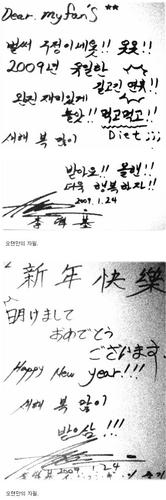 Dear. my fan's **
벌써 구정이네욧!! 욧욧!!
2009년 유일한
길고긴 연휴!!
완전 재미있게
놀았!! 먹고먹고!!
Diet;;;
새해 복 많이
받아요!! 올해!!
더욱 행복하자!!
2009. 1. 24
오현민의 자필.
新年快樂
明けまして
おめでとう
ございます
Happy New year!!!
새해 복 많이
받아삼!!!
2009 1. 24
오현민의 자필.